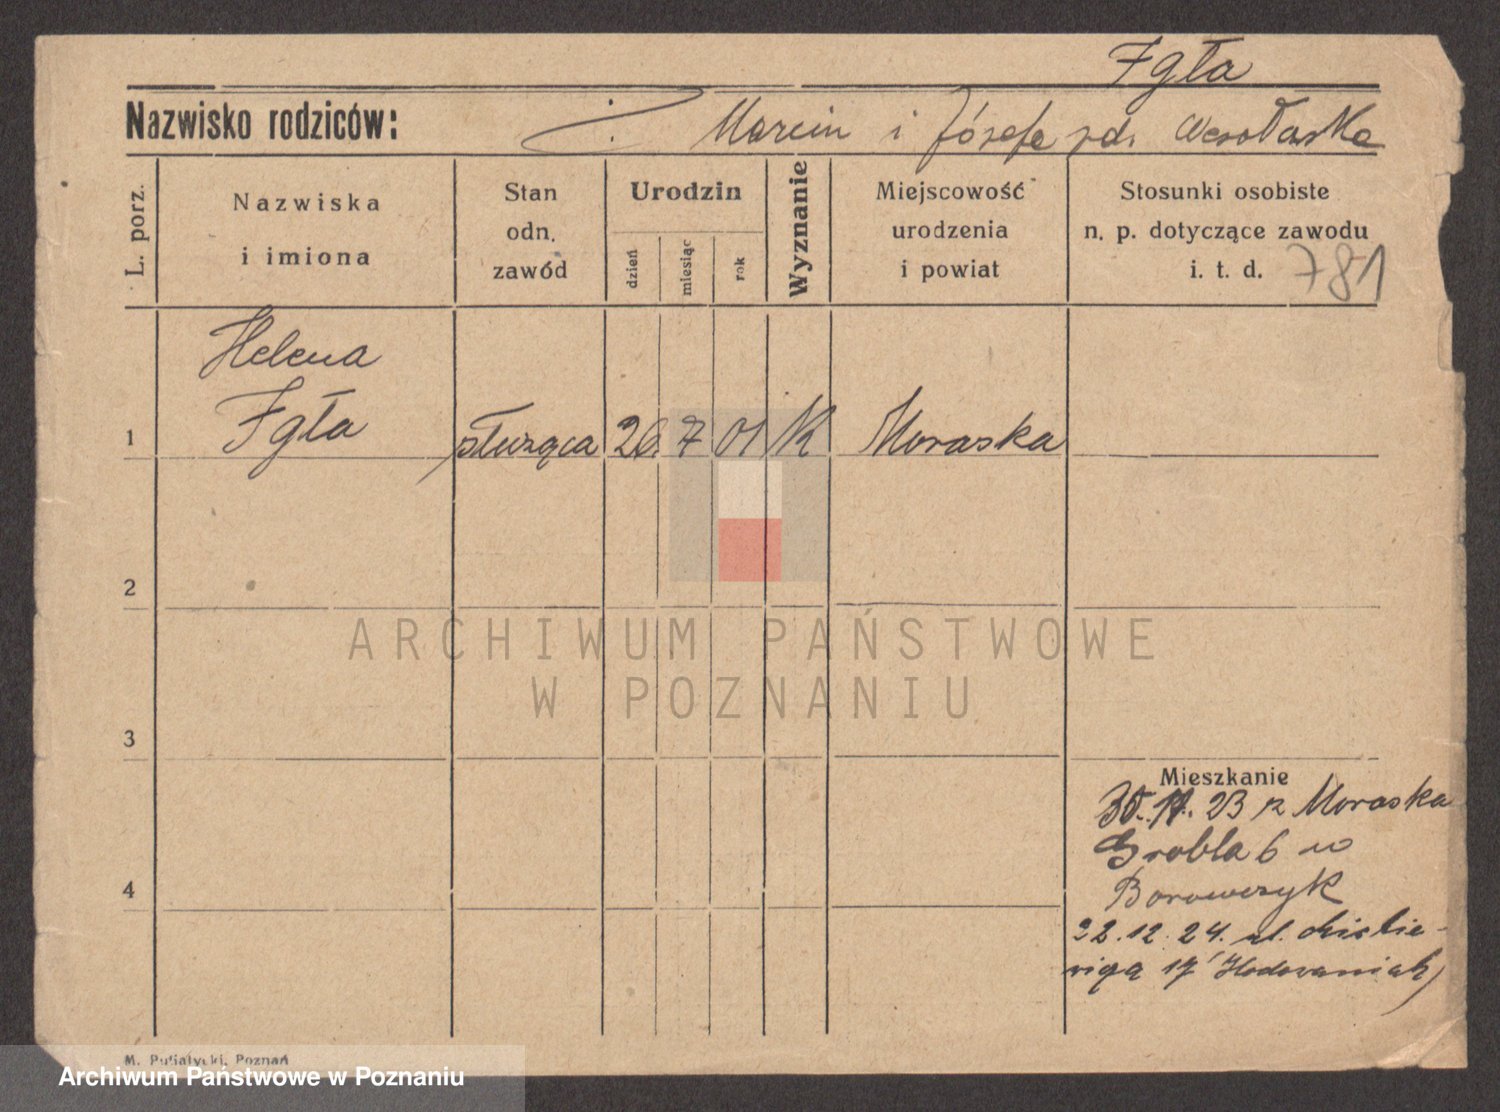 Igła
Nazwisko rodziców: Marcin i Józefa zd. Wesołowska
L. porz.
Nazwiska
i imiona
Stan
odn.
zawód
Urodzin
dzień
miesiąc
rok
Wyznanie
Miejscowość
urodzenia
i powiat
Stosunki osobiste
n. p. dotyczące zawodu
i. t. d. 781
Helena
1 Igła służąca 26. 7 01 K Moraska
2
ARCHIWUM PAŃSTWOWE
W POZNANIU
3
Mieszkanie
23 z Moraska
Grobla 6 w
Borowczyk
4
22.12.24. ul.
17 Hodowaniak
M. Putiatycki, Poznań
Archiwum Państwowe w Poznaniu